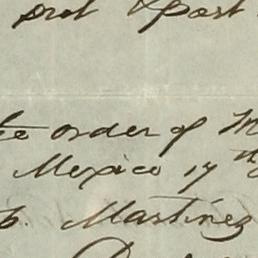 Past
order of M
Mexico 17th
Martinez